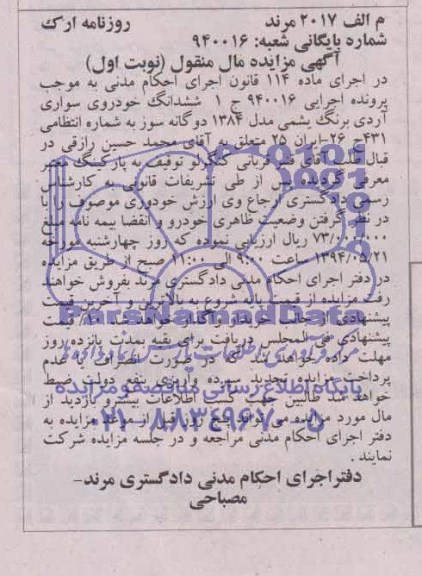 م الف ۲۰۱۷ مرند روزنامه ارک
شماره بایگانی شعبه: ۹۴۰۰۱۶
آگهی مزایده مال منقول (نوبت اول)
در اجرای ماده ۱۱۴ قانون اجرای احکام مدنی به موجب
پرونده اجرایی ۹۴۰۰۱۶ ج ۱ ششدانگ خودروی سواری
آردی برنگ یشمی مدل ۱۳۸۴ دوگانه سوز به شماره انتظامی
۴۳۱ج ۲۶-ایران ۲۵ متعلق به آقای محمد حسین رازقی در
قبال طلب آقای قربانی که توقیف به پارکینگ
معرفی گردیده پس از طی تشریفات قانونی و کارشناس
رسمی دادگستری ارجاع وی ارزش خودوری موصوف را با
در نظر گرفتن وضعیت ظاهری خودرو و انقضا بیمه نامه مبلغ
۷۳/۰۰۰/۰۰۰ ریال ارزیابی نموده که روز چهارشنبه مورخه
۱۳۹۴/۰۵/۲۱ ساعت ۹:۰۰ الی ۱۱:۰۰ صبح از طریق مزایده
در دفتر اجرای احکام مدنی دادگستری مرند بفروش خواهند
رفت مزایده از قیمت پایه شروع به بالاترین و آخرین قیمت
پیشنهادی خریدار واگذار خواهد شد قیمت
پیشنهادی فی المجلس دریافت برای بقیه بمدت پانزده روز
مهلت داده خواهد شد که در صورت انصراف یا عدم
پرداخت مزایده تجدید سپرده واریزی بنفع دولت ضبط
خواهد شد طالبین جهت کسب اطلاعات بیشتر و بازدید از
مال مورد مزایده می توانند روز قبل از موعد مزایده به
دفتر اجرای احکام مدنی مراجعه و در جلسه مزایده شرکت
نمایند .
دفتر اجرای احکام مدنی دادگستری مرند-
مصباحی
ParsNamadData
پایگاه اطلاع رسانی مناقصه و مزایده
۰۲۱-۸۸۳۴۹۶۷۰-۵